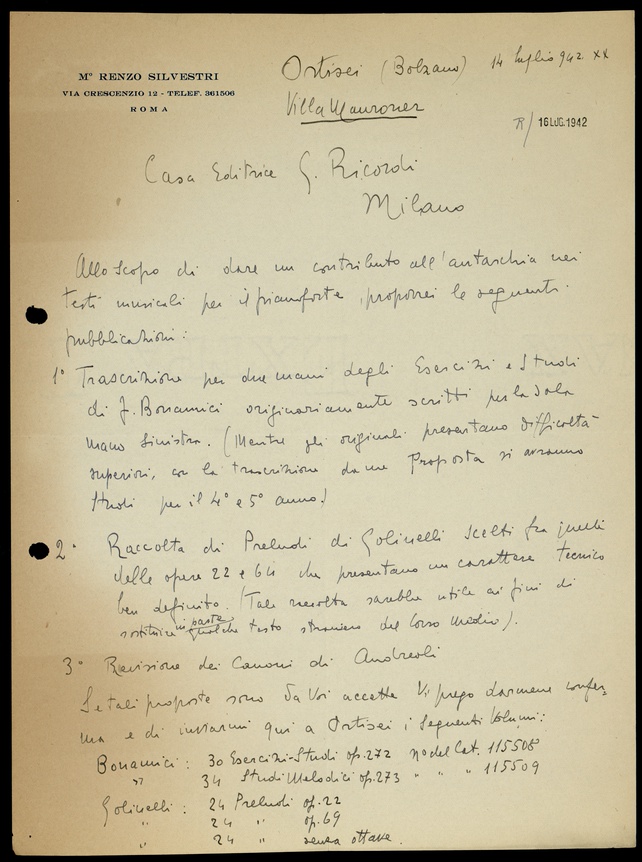 Mº RENZO SILVESTRI
VIA CRESCENZIO 12 - TELEF. 361506
ROMA
Ortisei (Bolzano) 14 luglio 942. XX
Villa Mauroner
R/ 16 LUG. 1942
Casa Editrice G. Ricordi
Milano
Allo scopo di dare un contributo all'autarchia nei
testi musicali per il pianoforte, proporrei le seguenti
pubblicazioni:
1º Trascrizione per due mani degli Esercizi e Studi
di J. Bonamici originariamente scritti per la sola
mano sinistra. (Mentre gli originali presentano difficoltà
superiori, con la trascrizione da me proposta si avranno
Studi per il 4º e 5º anno.)
2º Raccolta di Preludi di Golinelli scelti fra quelli
delle opere 22 e 64 che presentano un carattere tecnico
ben definito. (Tale raccolta sarebbe utile ai fini di
sostituire in parte qualche testo straniero del Corso Medio).
3º Revisione dei Canoni di Andreoli
Se tali proposte sono da Voi accette Vi prego darmene confer-
ma e di inviarmi qui a Ortisei i seguenti Volumi:
Bonamici: 30 Esercizi-Studi op. 272 no del Cat. 115508
" 34 Studi Melodici op. 273 " " " 115509
Golinelli: 24 Preludi op. 22
" 24 " op. 69
" 24 " senza ottave.